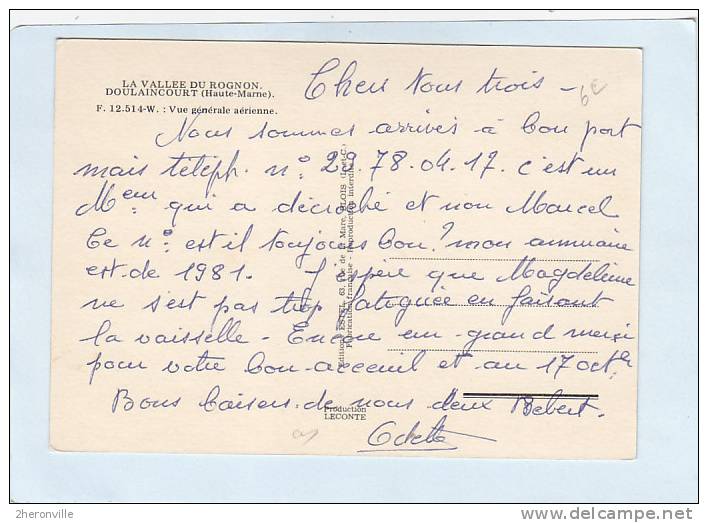 LA VALLEE DU ROGNON.
DOULAINCOURT (Haute-Marne).
F. 12.514-W. : Vue générale aérienne.
Chers Vous trois -
6€
Nous sommes arrivés à bon port
mais téléph. n° 29.78.04.17. c'est un
Meur. qui a décroché et non Marcel
Ce n° est il toujours bon ? mon annuaire
est de 1981. J'espère que Magdeleine
ne s'est pas trop fatiguée en faisant
la vaisselle - Encore un grand merci
pour votre bon acceuil et au 17 octbre
Bons baisers de nous deux Bebert.
Odette
Editions ESTEL, 63, Rue de la Mare, BLOIS (L.-et-C.)
Fabrication française - Reproduction interdite
Production
LECONTE
2heronville
delcampe.net